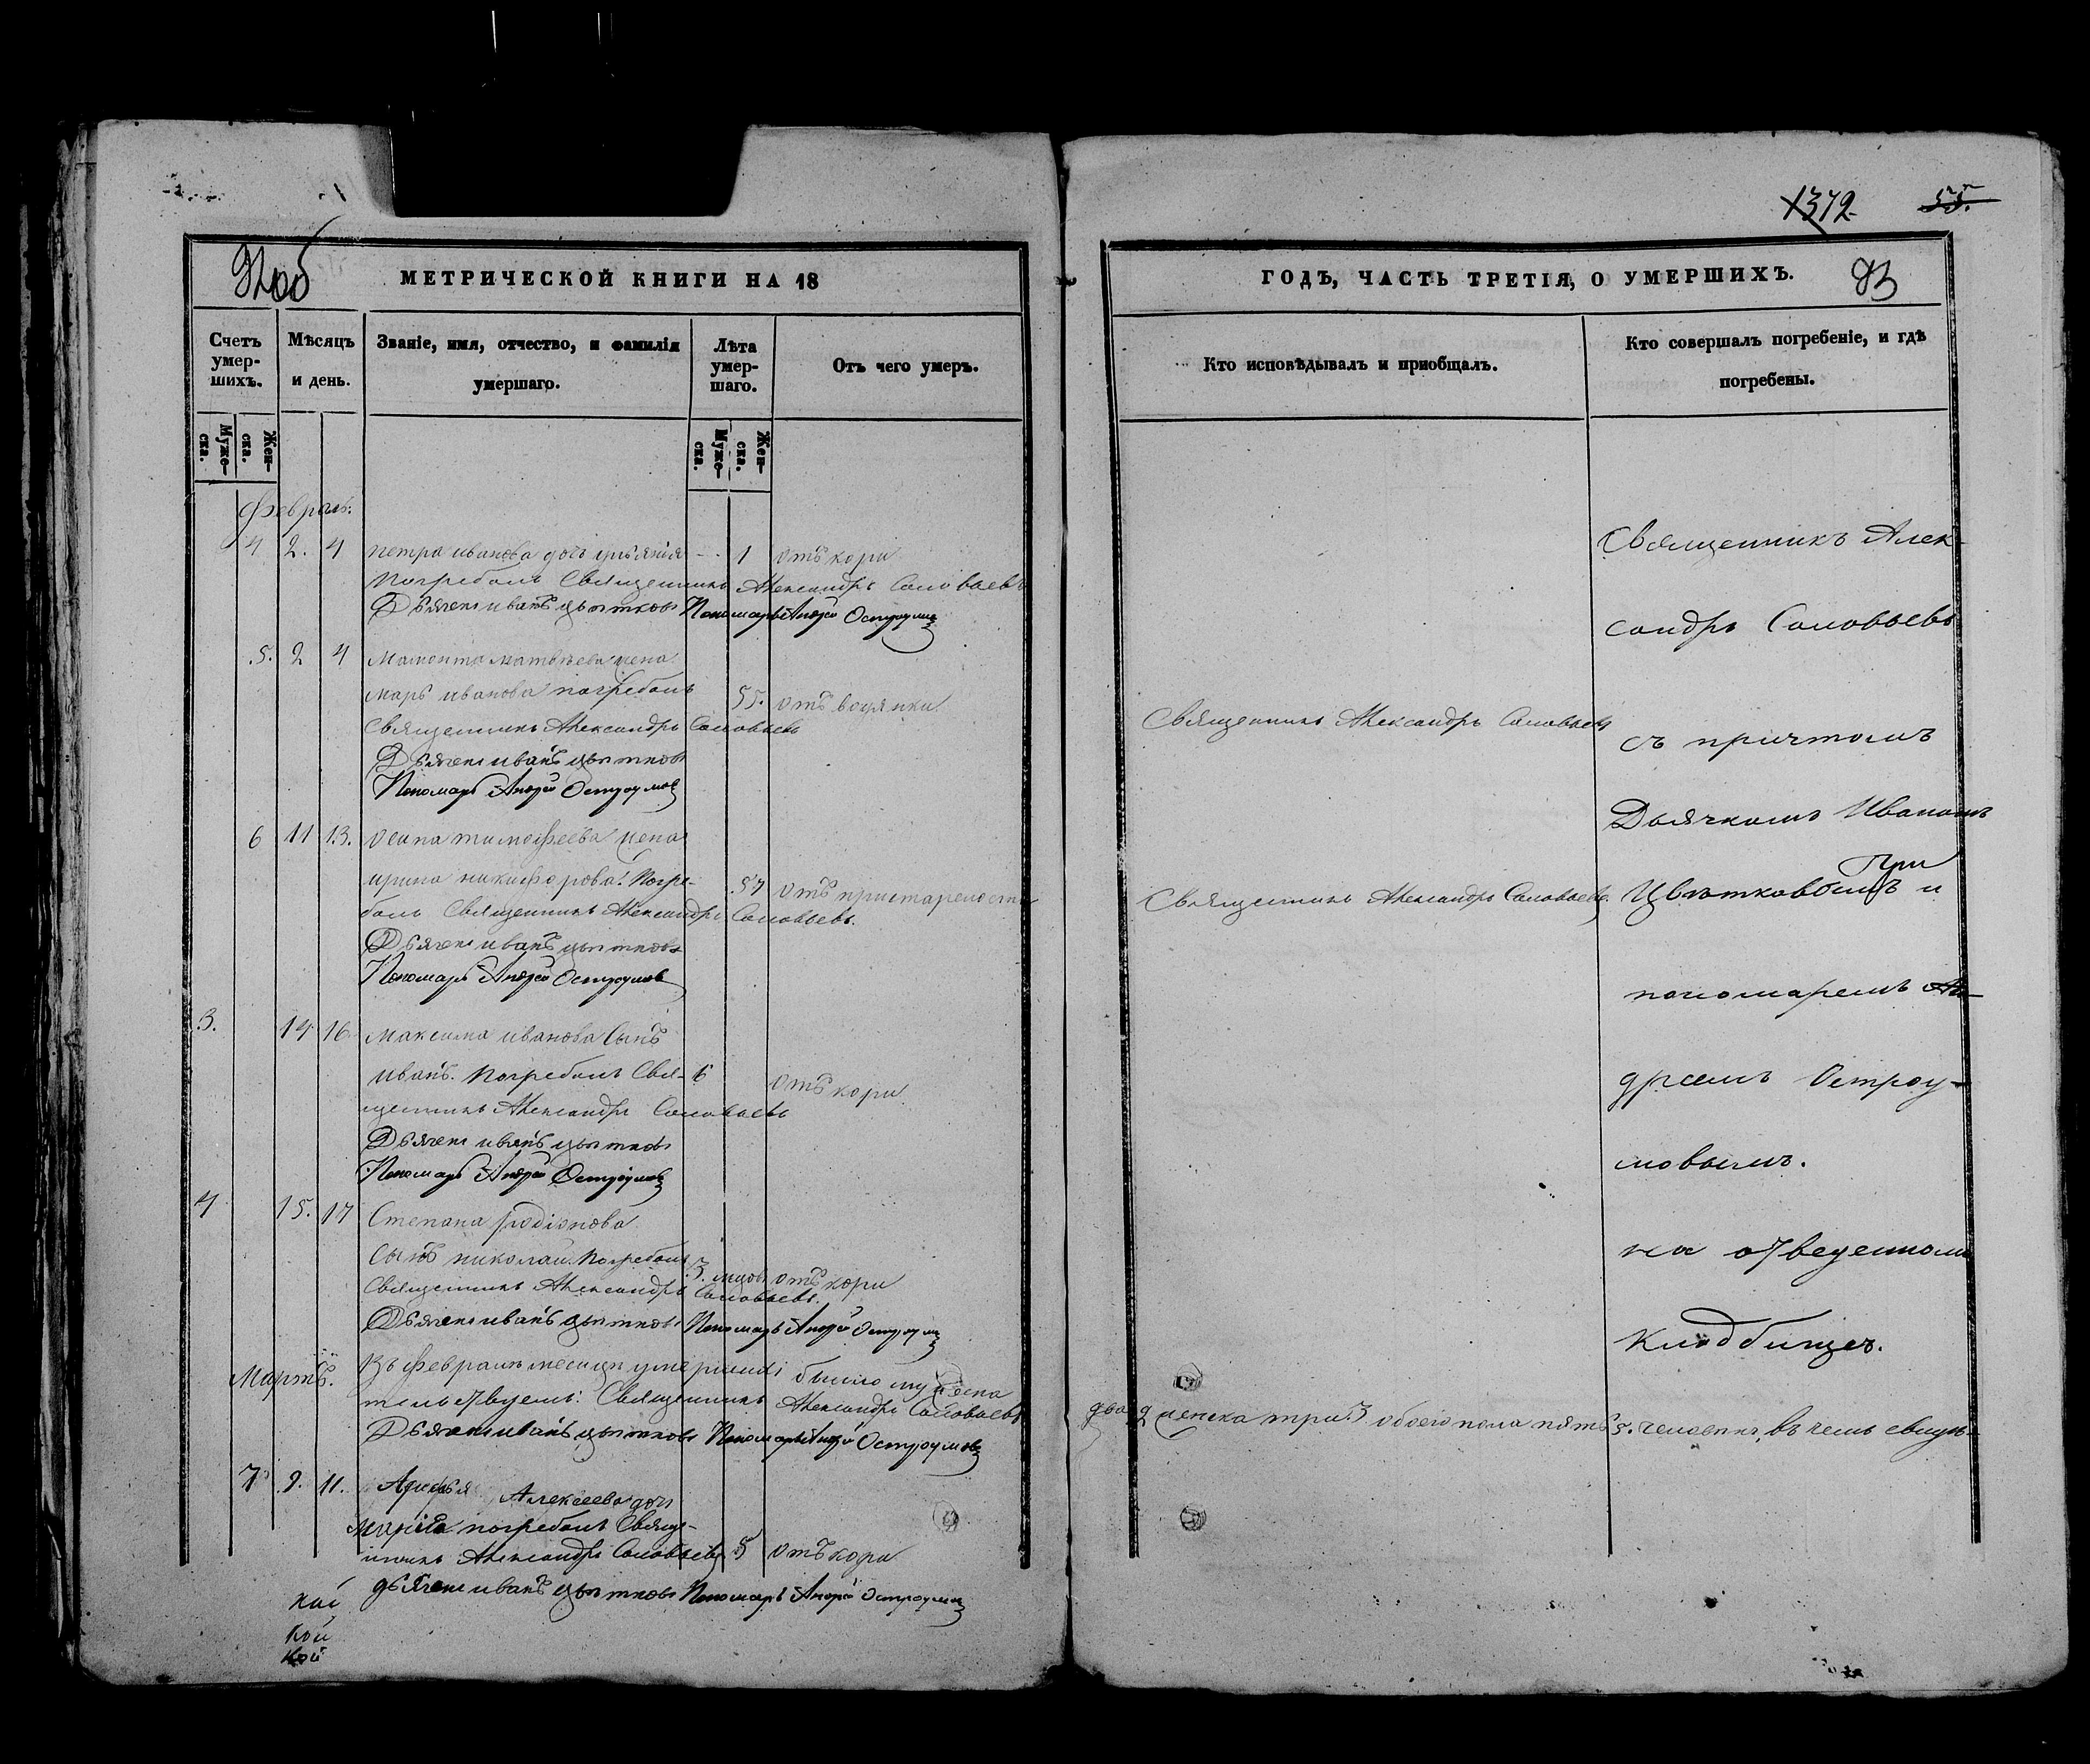 МЕТРИЧЕСКОЙ КНИГИ НА 18
Счетъ умер-шихъ.
Мѣсяцъ и день.
Званіе, имя, отчество, и фамилія умершаго.
Лѣта умер-шаго.
Отъ чего умеръ.
Муже-ска.
Жен-ска.
Муже-ска.
Жен-ска.
Февраль.
4 2. 4 петра иванова дочь 1 отъ кори
Погребалъ Священникъ Александръ Соловьевъ
Дьячекъ иванъ цвѣтковъ Пономарь Андрей Остроумов
5. 2 4 Мамонта матвѣева жена
марь иванова погребалъ 55. отъ водянки
Священникъ Александръ Соловьевъ
Дьячекъ иванъ цвѣтковъ
Пономарь Андрей Остроумов
6 11 13. осипа тимофеева жена
ирина никифорова. Погре- 57 отъ престарелости
балъ Священникъ Александръ Соловьевъ.
Дьячекъ иванъ цвѣтковъ
Пономарь Андрей Остроумов
3. 14 16 максима иванова Сынъ
иванъ. Погребалъ Свя- 6 отъ кори
щенникъ Александръ Соловьевъ
Дьячекъ иванъ цвѣтковъ
Пономарь Андрей Остроумов
4 15. 17 Степана родіонова
сынъ николай. Погребалъ 3. отъ кори
Священникъ Александръ Соловьевъ.
Дьячекъ иванъ цвѣтковъ Пономарь Андрей Остроумов
Мартъ.
Въ Февралѣ месяцѣ умершихъ было мужеска
Священникъ Александръ Соловьевъ
Дьячекъ иванъ цвѣтковъ Пономарь Андрей Остроумовъ
7 9. 11. Алексеева дочь
Марія погребалъ Свяще-
нникъ Александръ Соловьевъ 5 отъ кори
дьячекъ иванъ цвѣтковъ Пономарь Андрей Остроумов
кой
кой
1372. 55.
ГОДЪ, ЧАСТЬ ТРЕТІЯ, О УМЕРШИХЪ.
93
Кто исповѣдывалъ и приобщалъ.
Кто совершалъ погребеніе, и гдѣ погребены.
Священникъ Александръ Соловьевъ
Священникъ Александръ Соловьевъ
Священникъ Алек-
сандръ Соловьевъ
съ причтомъ
Дьячкомъ Иваномъ
При
Цвѣтковымъ и
пономаремъ Ан-
дреемъ Остроу-
мовымъ.
на отведенномъ
кладбище.
два 2 женска три 3 обоего пола пять 5. человекъ, въ чемъ свидѣ-